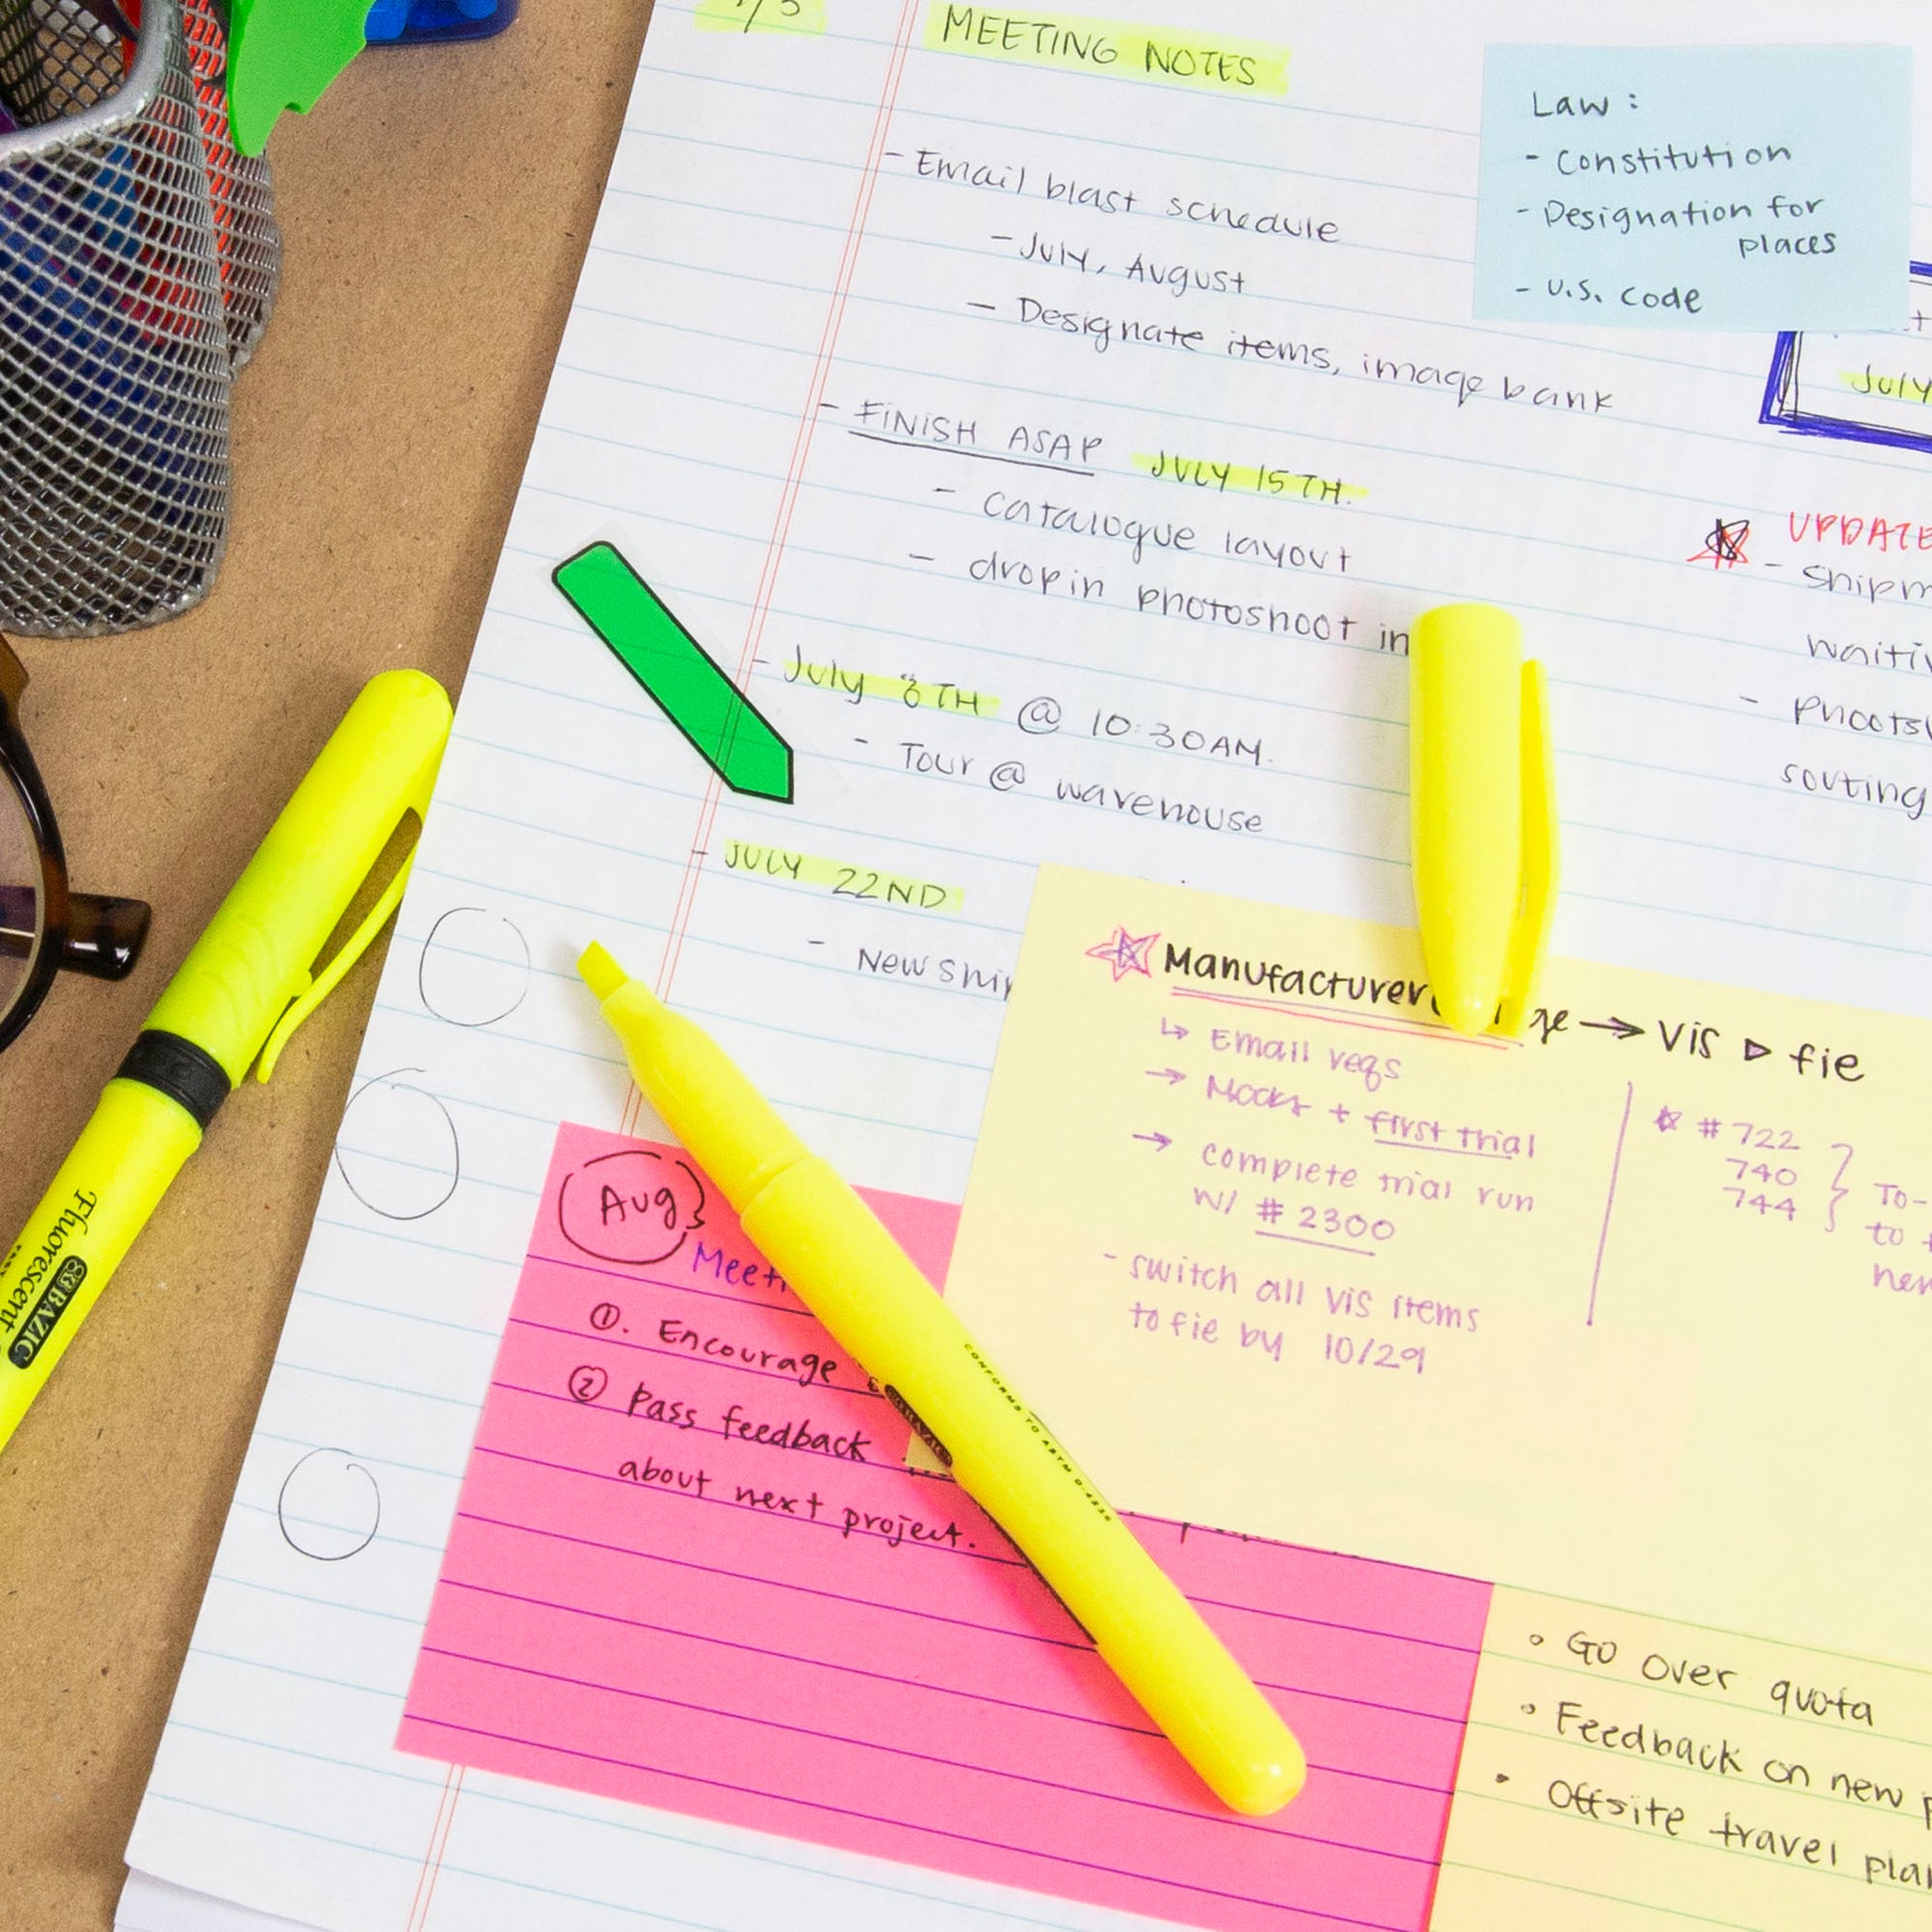 MEETING NOTES
- Email blast schedule
- July, August
- Designate items, image bank
- FINISH ASAP JULY 15TH.
- Catalogue layout
- drop in photoshoot in
- July 8TH @ 10:30AM.
- Tour @ warehouse
- JULY 22ND
- New
Law:
- Constitution
- Designation for
places
- U.S. Code
July
UPDATE
-
- 
sorting
Manufacturer → Vis ▷ fie
↳ Email reqs
→ Mocks + first trial
→ complete trial run
w/ # 2300
- switch all vis items
to fie by 10/29
# 722
740
744
To-
to
Aug
①. Encourage
② Pass feedback
about next project.
• Go over quota
• Feedback on new
• Offsite travel
Fluorescent
BAZIC
CONFORMS TO ASTM D-4236